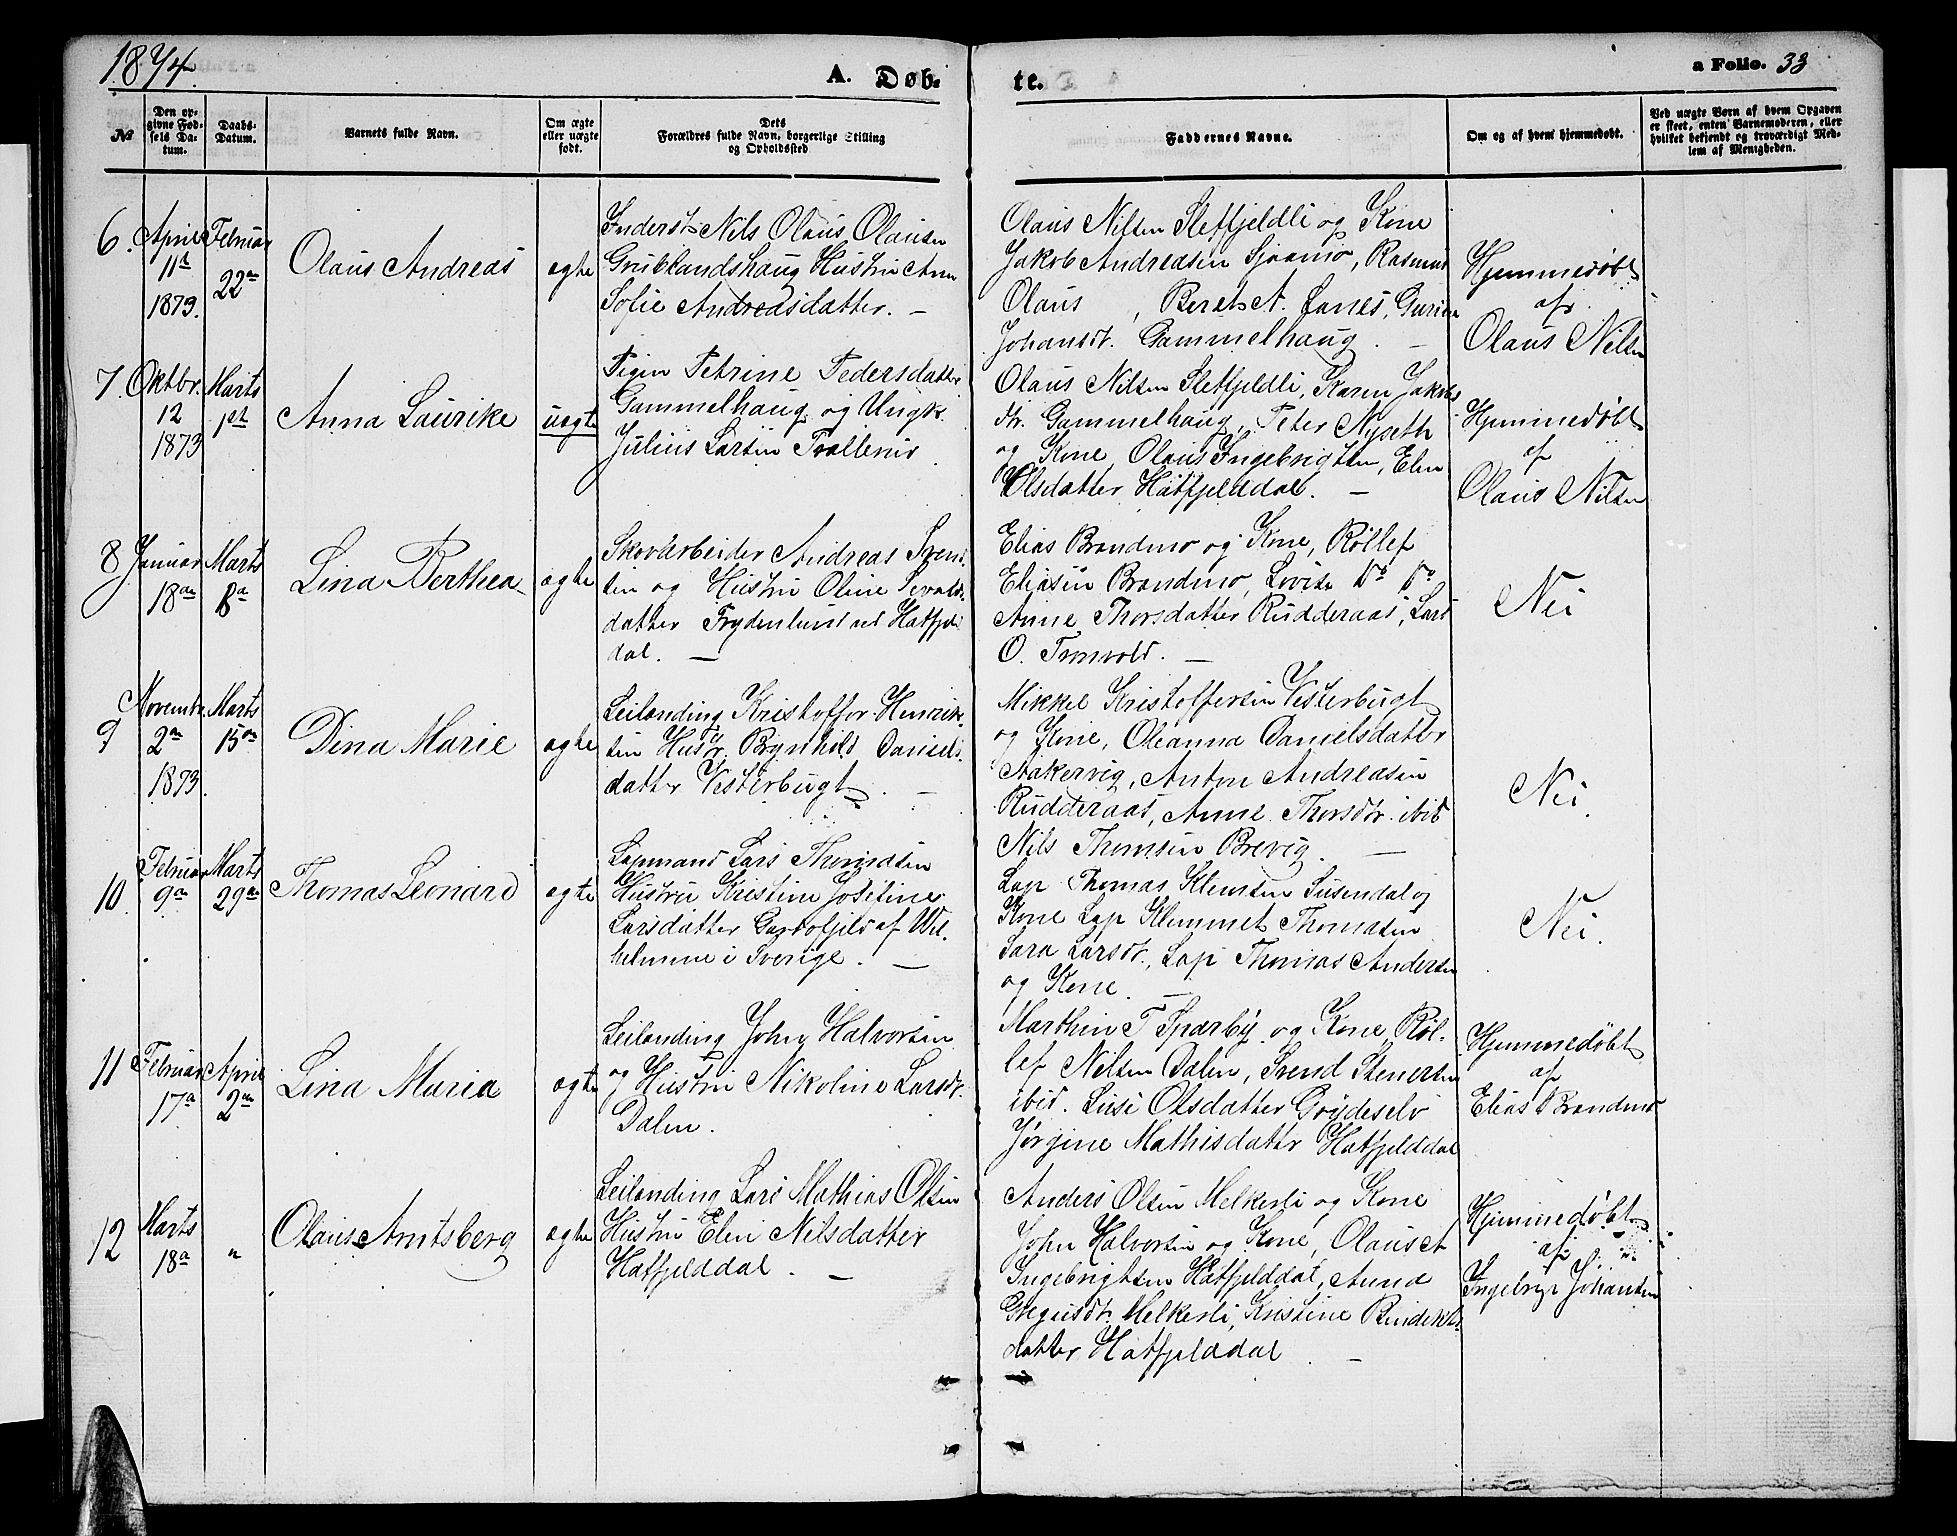 1874.
A. Døb-
te.
a Folio. 33
No
Den opgivne Fødsels Datum.
Daabs-Datum.
Barnets fulde Navn.
Om ægte eller uægte født.
Dets Forældres fulde Navn, borgerlige Stilling og Opholdssted
Faddernes Navne.
Om og af hvem hjemmedøbt.
Ved uægte Børn af hvem Opgaven er skeet, enten Barnemoderen, eller hvilket bekjendt og troværdigt Medlem af Menigheden.
6.
April
11te
1873.
Februar
22de
Olaus Andreas
ægte
Inderst Nils Olaus Olausen
Grublandshaug Hustru Ane
Sofie Andreasdatter. –
Olaus Nilsen Sletfjeldli og Kone
Jakob Andreasen Sjaamo, Rasmus
Olaus , Beret A. Lanes, Gurine
Johansdr. Gammelhaug. –
Hjemmedøbt
af
Olaus Nilsen
7.
Oktbr.
12
1873
Marts
1ste
Anna Laurike
uægte
Pigen Petrine Pedersdatter
Gammelhaug og Ungk.
Julius Larsen
Olaus Nilsen Sletfjeldli, Karen Jakobs
dtr. Gammelhaug, Peter Nyseth
og Kone, Olaus Ingebrigtsen, Elen
Olsdatter Hatfjelddal. –
Hjemmedøbt
af
Olaus Nilsen
8
Januar
18de
Marts
8de
Lina Berthea
ægte
Skovarbeider Andreas Svend
sen og Hustru Oline Sivalds
datter Frydenlund ved Hatfjeld
dal. –
Elias Brandmo og Kone, Rollef
Eliasen Brandmo, Lovise Do Do
Anne Thorsdatter Rudderaas, Lars
O. Tronvold. –
Nei
9
Novembr.
2den
1873
Marts
15de
Dina Marie
ægte
Leilending Kristoffer Henrik-
sen Hustr. Brynhild Daniels-
datter Vesterbugt. –
Mikkel Kristoffersen Vesterbugt
og Kone, Oleanna Danielsdatter
Aakervig, Anton Andreasen
Rudderaas, Anne Thorsdr. ibid
Nils Thomsen Brevig. –
Nei.
10
Februar
9de
Marts
29de
Thomas Leonard
ægte
Lapmand Lars Thomasen
Hustru Kristine Josefine
Larsdatter af Wil-
helmine i Sverige. –
Lap Thomas Klemsen Susendal og
Kone Lap Klemmet Thomasen
Sara Larsdr., Lap Thomas Andersen
og Kone. –
Nei.
11
Februar
17de
April
2den
Lina Maria
ægte
Leilending John Halvorsen
og Hustru Nikoline Larsdr.
Dalen.
Marthin T Sparby og Kone, Rol-
lef Nilsen Dalen, Svend Stenersen
ibid. Lusi Olsdatter Grøideselv
Jørgine Mathisdatter Hatfjelddal
Hjemmedøbt
af
Elias Brandmo
12
Marts
18de
"
Olaus Amtsberg
ægte
Leilending Lars Mathias Olsen
Hustru Elen Nilsdatter
Hatfjelddal. –
Anders Olsen Melkerli og Kone
John Halvorsen og Kone, Olaus A
Ingebrigtsen Hatfjelddal, Anna
Gregusdr. Melkerli, Kristine Bendikts
datter Hatfjelddal. –
Hjemmedøbt
af
Ingebrigt Johansen